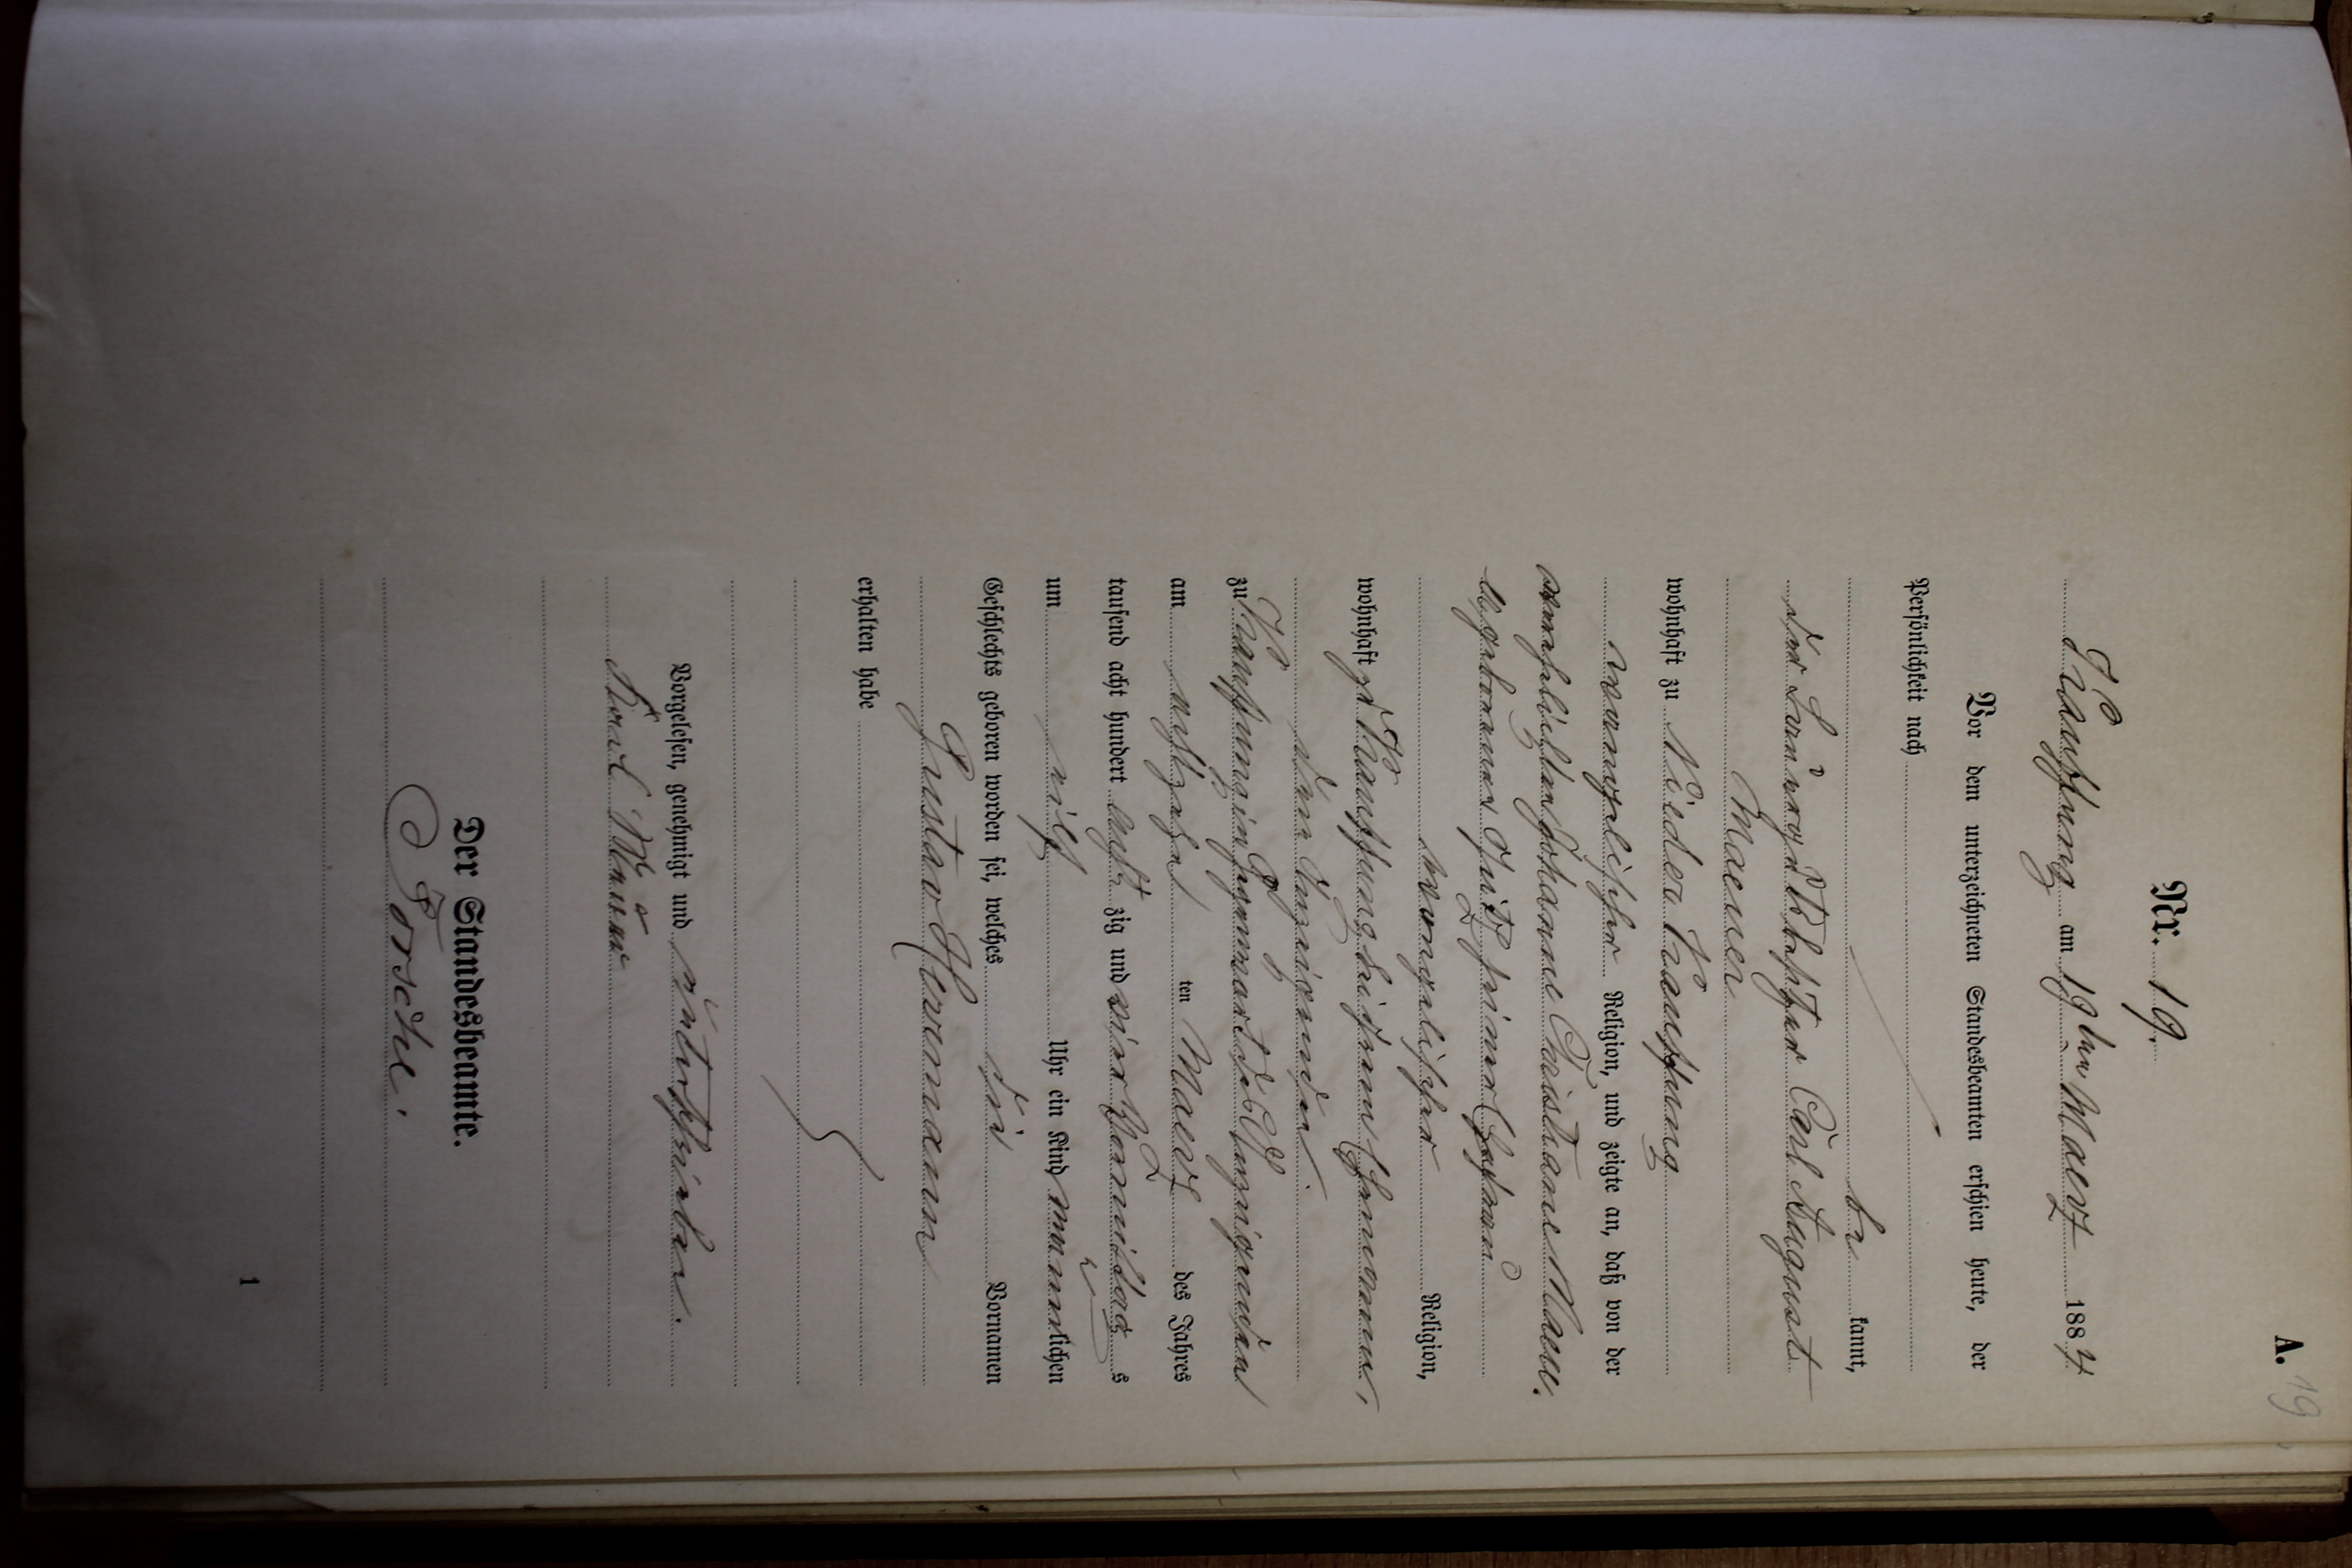 A. 19
Nr. 19.
Kauffung am 19ten Maerz 1884
Vor dem unterzeichneten Standesbeamten erschien heute, der
Persönlichkeit nach
be kannt,
der Carl August
Maeuer
wohnhaft zu Nieder Kauffung
evangelischer Religion, und zeigte an, daß von der
verehelichten Johanne Christiane Maeuer
geborenen seiner Ehefrau
evangelischer Religion,
wohnhaft zu Kauffung bei ihrem Ehemanne,
dem Anzeigenden
zu Kauffung in Gegenwart des Anzeigenden
am achtzehn ten Maerz des Jahres
tausend acht hundert acht zig und vier Vormittag s
um elf Uhr ein Kind maennlichen
Geschlechts geboren worden sei, welches die Vornamen
Gustav Hermann
erhalten habe
Vorgelesen, genehmigt und unterschrieben.
Karl Mäuer
Der Standesbeamte.
Förschel.
1